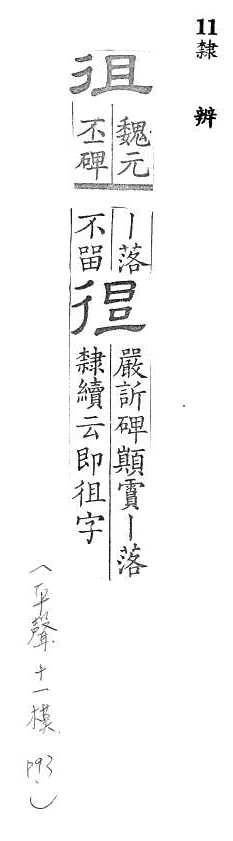 11隸 辨
徂
魏元
丕碑
丨落
不㽞
嚴訢碑顛霣丨落
隸續云即徂字
(平聲十一模 P93)